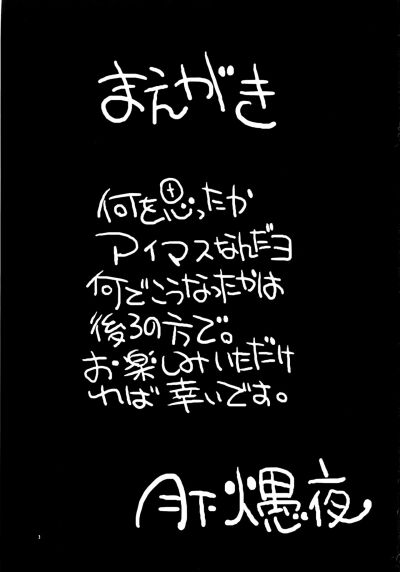 まえがき
何を思ったか
アイマスなんだヨ
何でこうなったかは
後ろの方で。
お楽しみいただけ
れば幸いです。
月下
夜
3